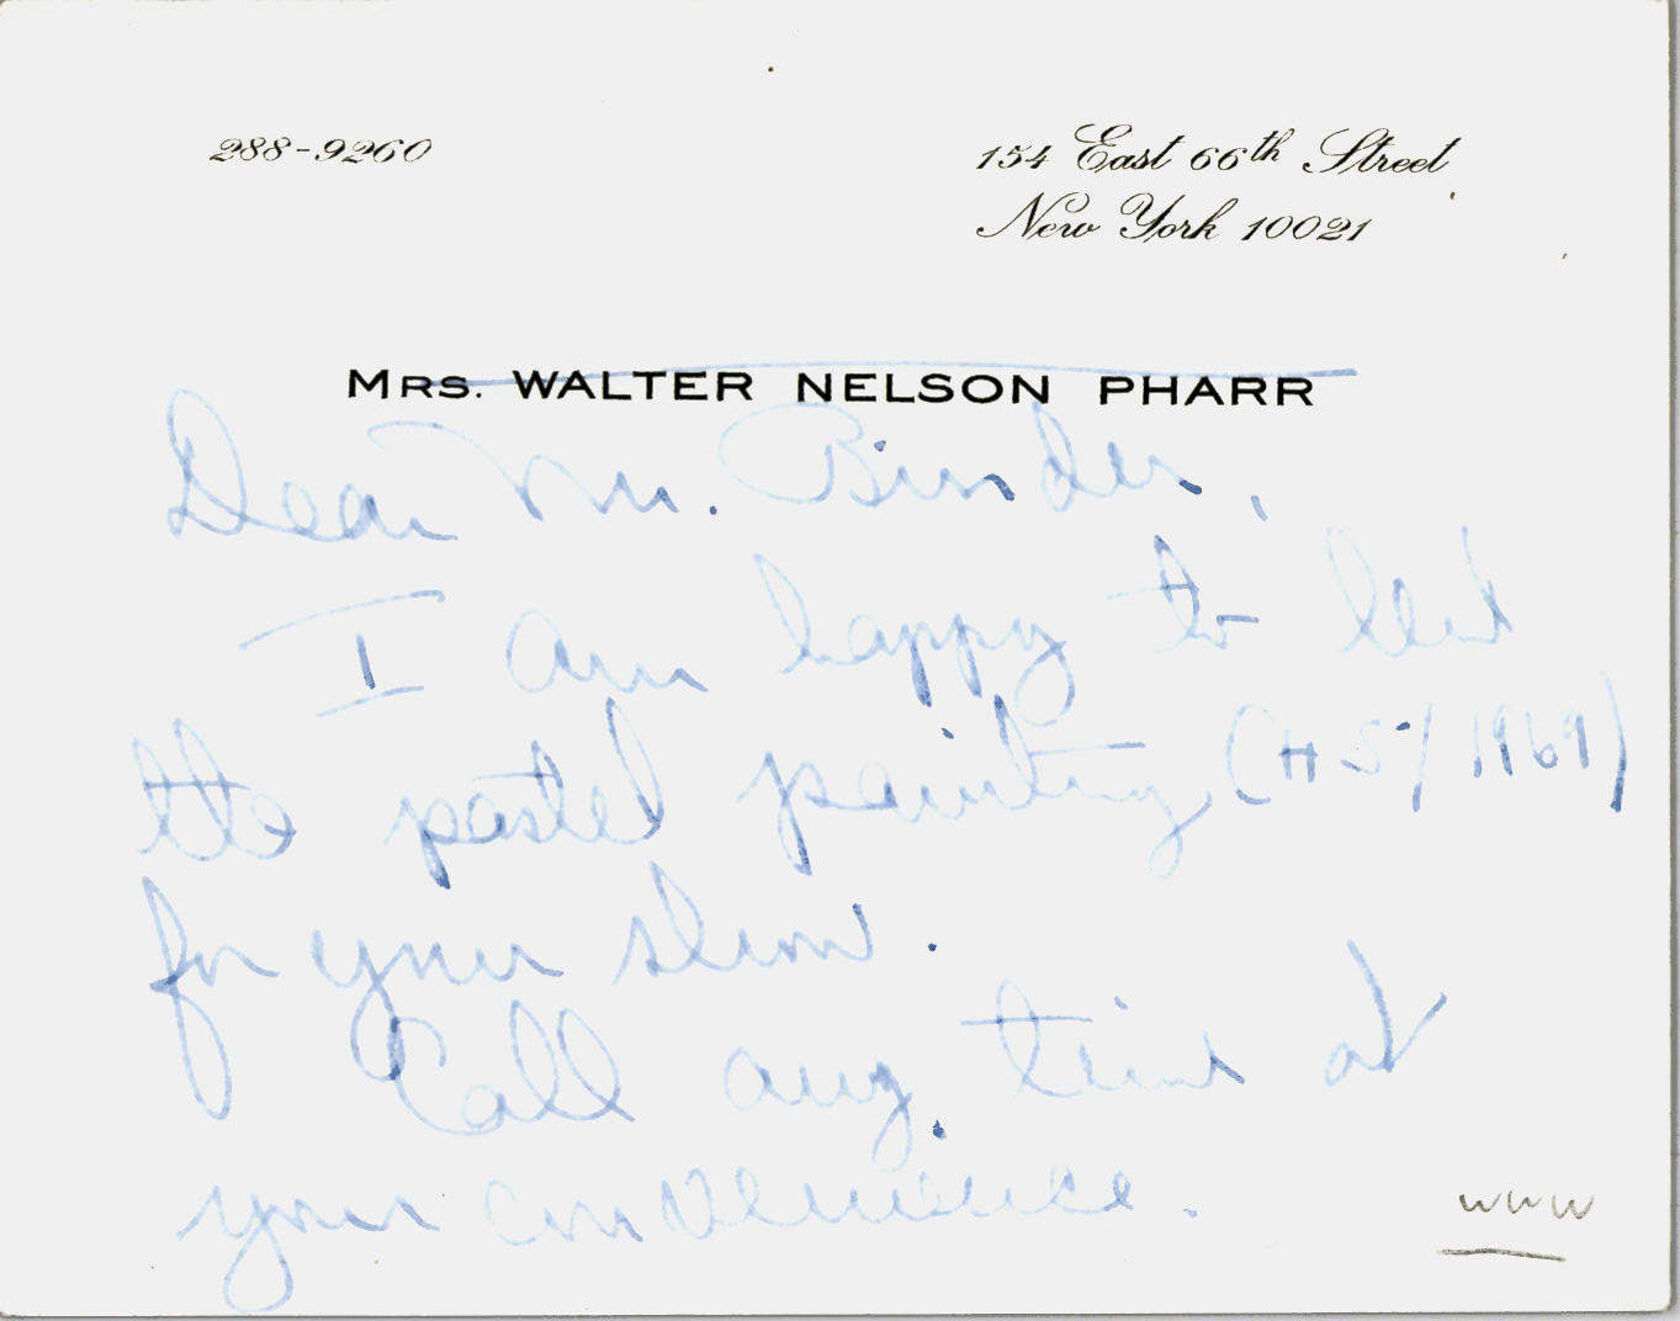 288-9260
154 East 66th Street
New York 10021
Mrs. WALTER NELSON PHARR
Dear Mr. Binder,
I am happy to lend
the pastel painting (#5/1969)
for your show.
Call any time at
your convenience.